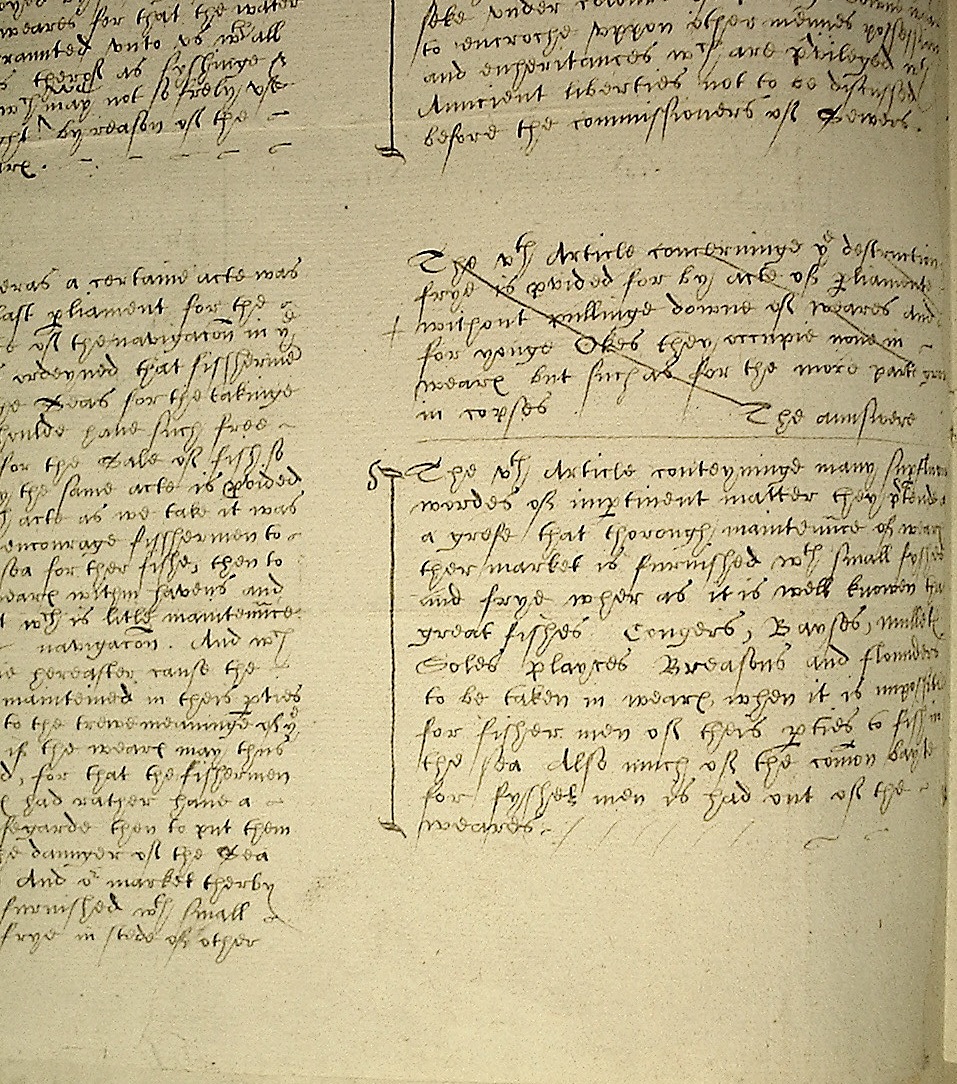 weares for that the water
graunted unto us wth all
therof as fysshinge &
wch may not so frely use
by reason of the

eras a certaine acte was
last pliament for the
of the navigacon in ye
ordeyned that fissherme
Seas for the takinge
shoulde have such free
for the Sale of fish so
the same acte is pvided
acte as we take it was
encourage fisshermen to
sea for ther fishe, then to
wearx within havens and
wch is litle maintennce
navigacon. And wch
hereafter cause the
mainteined in theis pties
to the trewe meaninge of ye
if the wearx may thus
for that the fishermen
had rather have a
safegarde then to put them
daunger of the Sea
And or market therby
furnished wth small
frye in stede of other
seke under colour
to encroche uppon other mennes possession
and enheritances wch are pvileged wth
Auncient liberties not to be discussed
before the commissioners of Sewers.
The vth Article concerninge ye destruction
frye is pvided for by acte of pliamente
without pullinge downe of weares and
for yonge Okes they occupie none in
wearx but such as for the more parte grow
in copses
The aunswere
5 The vth Article conteyninge many
wordes of impertinent matter they ptende
a grefe that thorough maintennce of wearx
ther market is furnished wth small fyshes
and frye wher as it is well knowen that
great fishes Congers, Bayses, mulletx
Soles playces Breasons and flounders
to be taken in wearx when it is impossible
for fisher men of theis pties to fish in
the sea Also much of the comon bayte
for fyssher men is had out of the
weares.